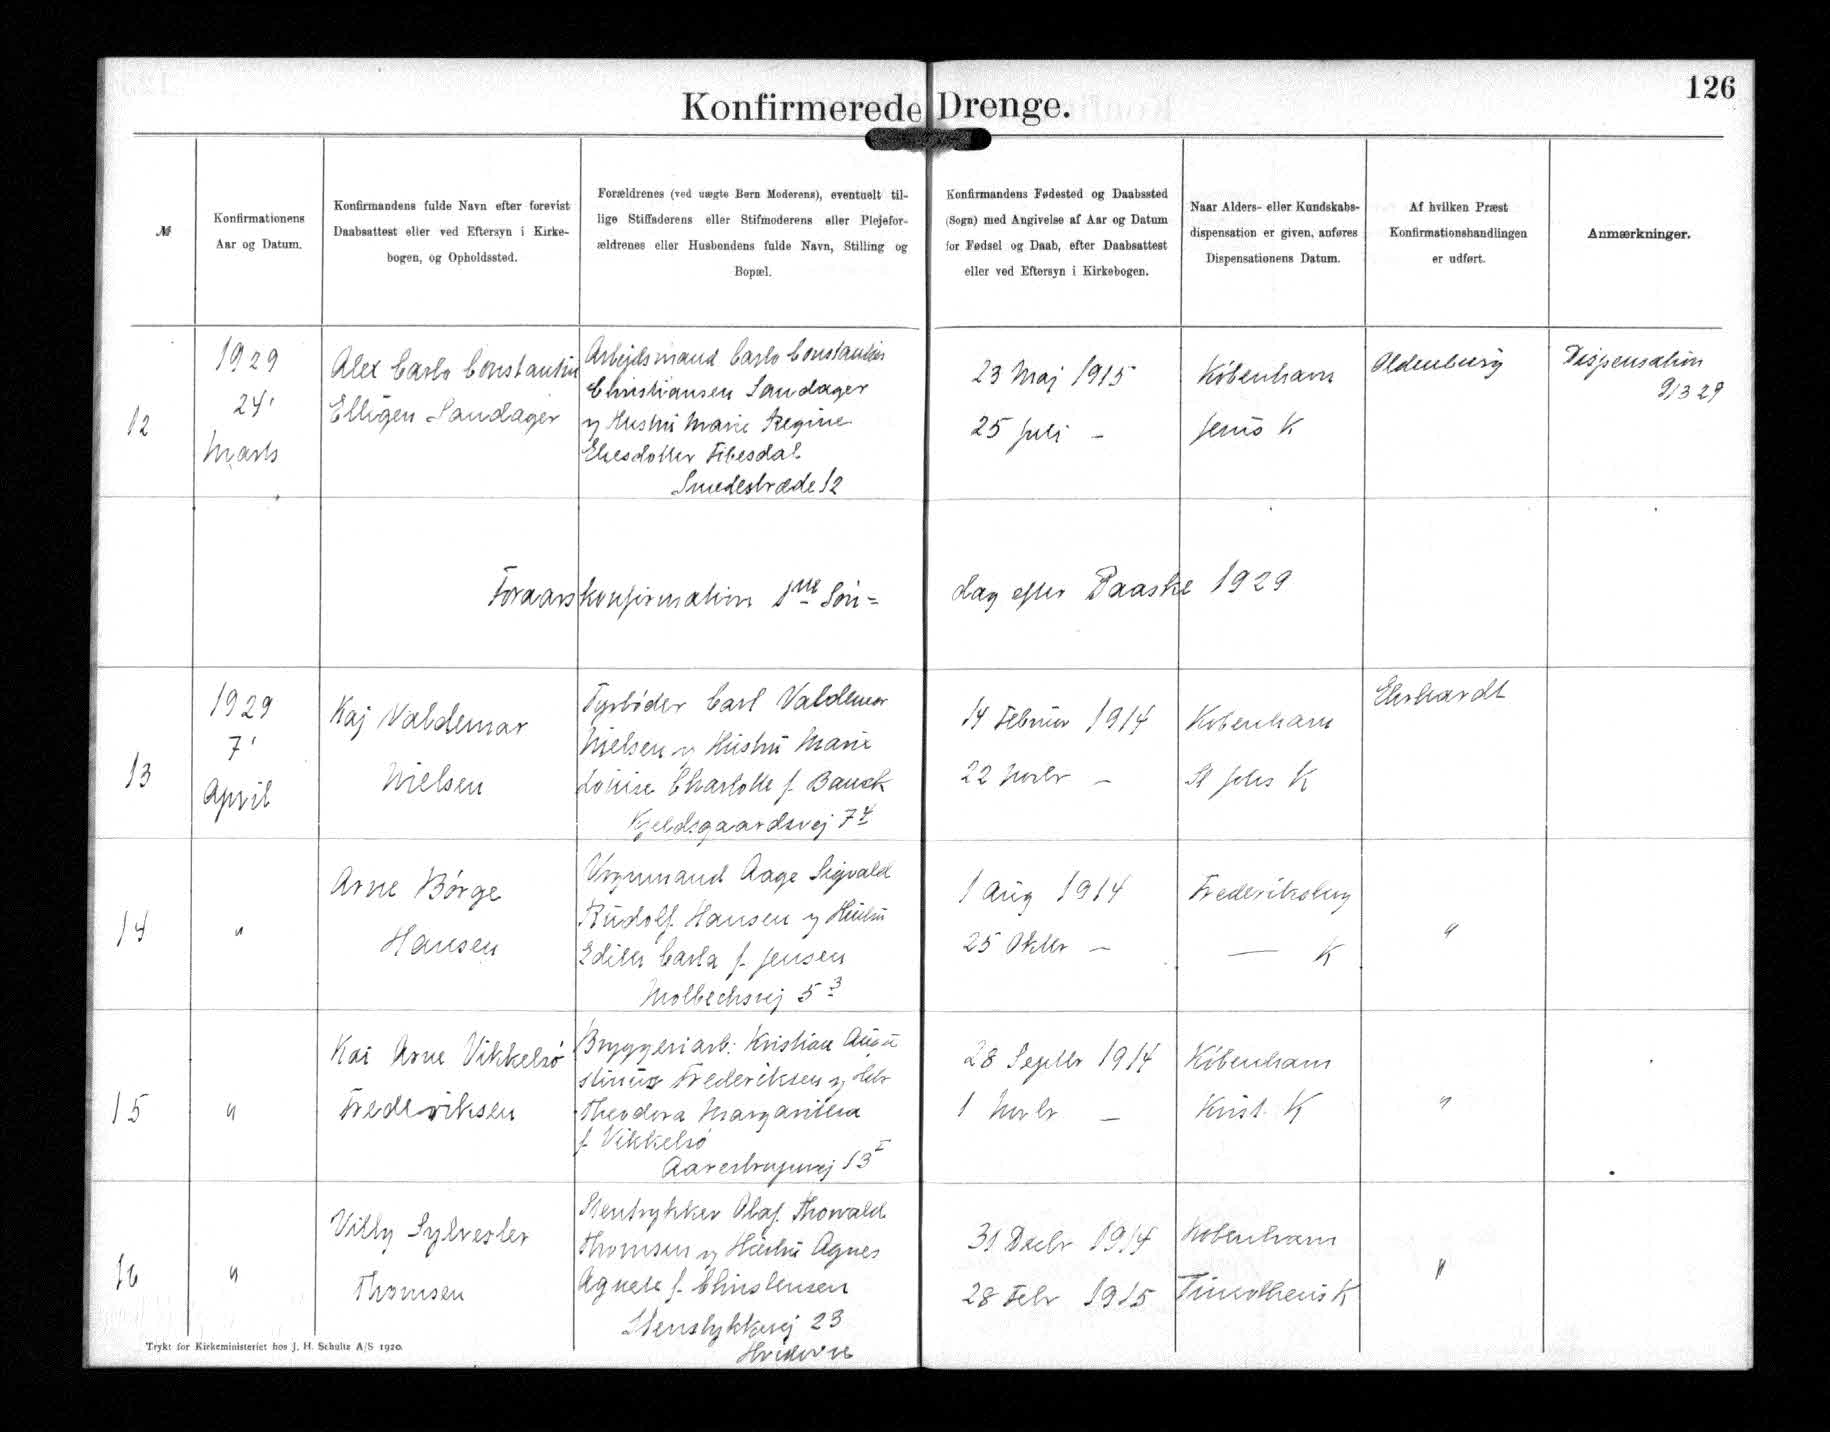 126
Konfirmerede Drenge.
№
Konfirmationens
Aar og Datum.
Konfirmandens fulde Navn efter forevist
Daabsattest eller ved Eftersyn i Kirke-
bogen, og Opholdssted.
Forældrenes (ved uægte Børn Moderens), eventuelt til-
lige Stiffaderens eller Stifmoderens eller Plejefor-
ældrenes eller Husbondens fulde Navn, Stilling og
Bopæl.
Konfirmandens Fødested og Daabssted
(Sogn) med Angivelse af Aar og Datum
for Fødsel og Daab, efter Daabsattest
eller ved Eftersyn i Kirkebogen.
Naar Alders- eller Kundskabs-
dispensation er given, anføres
Dispensationens Datum.
Af hvilken Præst
Konfirmationshandlingen
er udført.
Anmærkninger.
12
1929
24'
Marts
Alex Carlo Constantin
Elligen Sandager
Arbejdsmand Carlo Constantin
Christiansen Sandager
og Hustru Marie Regine
Sandager
Smedestræde 12
23 Maj 1915
25 Juli -
København
Jesus K
Oldenburg
Dispensation
9/3 29
Foraarskonfirmation 1ne Søn=
dag efter Paaske 1929
13
1929
7'
April
Kaj Valdemar
Nielsen
Fyrbøder Carl Valdemar
Nielsen og Hustru Marie
Louise Charlotte f. Bauck
Kjeldsgaardsvej 7 4
14 Februar 1914
22 Novbr -
København
St Johs K
Ehrhardt
14
"
Arne Børge
Hansen
Vognmand Aage Sigvald
Rudolf Hansen og Hustru
Edith Carla f. Jensen
Molbechsvej 5 3
1 Aug 1914
25 Oktbr -
Frederiksberg
— K
"
15
"
Kai Arne Vikkelsø
Frederiksen
Bryggeriarb: Kristian Augu
stinus Frederiksen og Hstr
Theodora Margarethea
f. Vikkelsø
Aarestrupsvej 13 I
28 Septbr 1914
1 Novbr -
København
Krist. K
"
16
"
Villy Sylvester
Thomsen
Stentrykker Olaf Thorvald
Thomsen og Hustru Agnes
Agnete f. Christensen
Stenstykkevej 23
Hvidovre
31 Decbr 1914
28 Febr 1915
København
Timotheus K
"
Trykt for Kirkeministeriet hos J. H. Schultz A/S 1920.